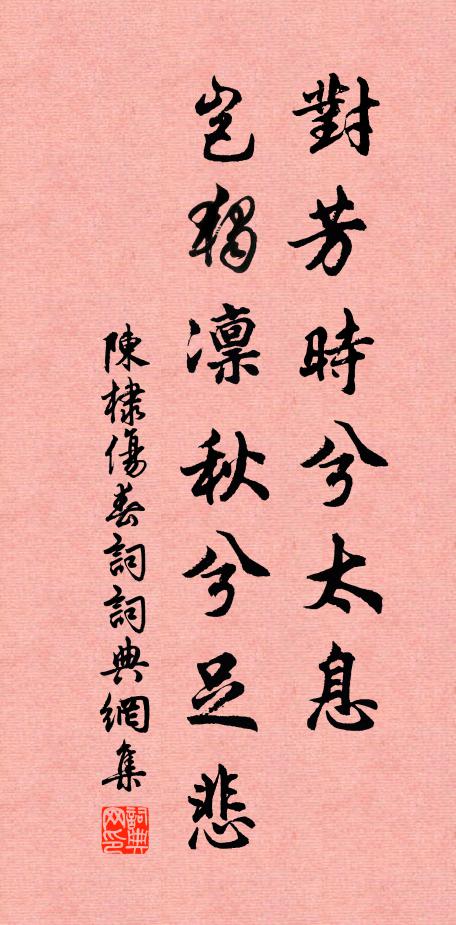 對芳時兮太息
豈獨凜秋兮足悲
陳棣傷春詞詞典網集
詞典网印